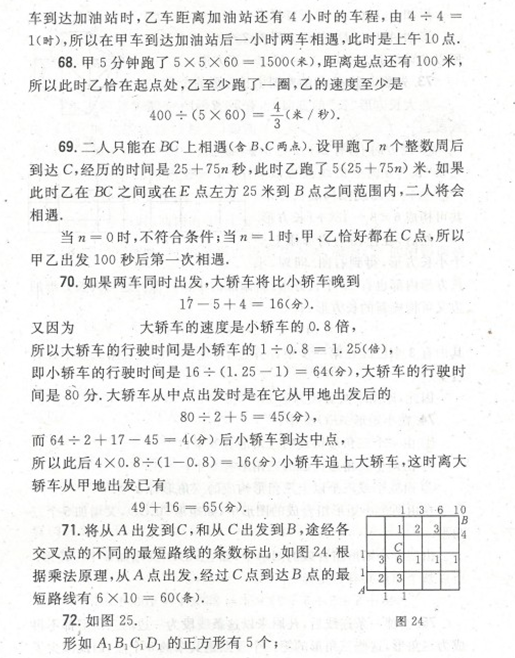 车到达加油站时，乙车距离加油站还有 4 小时的车程，由 4÷4＝
1(时)，所以在甲车到达加油站后一小时两车相遇，此时是上午10点．
68. 甲 5 分钟跑了 5×5×60＝1500(米)，距离起点还有 100 米，
所以此时乙恰在起点处，乙至少跑了一圈，乙的速度至少是
400÷(5×60)＝4/3(米／秒)．
69. 二人只能在 BC 上相遇(含 B、C 两点)．设甲跑了 n 个整数周后
到达 C，经历的时间是 25＋75n 秒，此时乙跑了 5(25＋75n) 米．如果
此时乙在 BC 之间或在 E 点左方 25 米到 B 点之间范围内，二人将会
相遇．
当 n＝0 时，不符合条件；当 n＝1 时，甲、乙恰好都在 C 点，所以
甲乙出发 100 秒后第一次相遇．
70. 如果两车同时出发，大轿车将比小轿车晚到
17－5＋4＝16(分)．
又因为 大轿车的速度是小轿车的 0.8 倍，
所以大轿车的行驶时间是小轿车的 1÷0.8＝1.25(倍)，
即小轿车的行驶时间是 16÷(1.25－1)＝64(分)，大轿车的行驶时
间是 80 分．大轿车从中点出发时是在它从甲地出发后的
80÷2＋5＝45(分)，
而 64÷2＋17－45＝4(分) 后小轿车到达中点，
所以此后 4×0.8÷(1－0.8)＝16(分) 小轿车追上大轿车，这时离大
轿车从甲地出发已有
49＋16＝65(分)．
71. 将从 A 出发到 C，和从 C 出发到 B，途经各
交叉点的不同的最短路线的条数标出，如图 24．根
据乘法原理，从 A 点出发，经过 C 点到达 B 点的最
短路线有 6×10＝60(条)．
1 3 6 10
B
1 2 3 4
C
3 6 1 1 1
2 3
A
1 1
图 24
72. 如图 25．
形如 A₁B₁C₁D₁ 的正方形有 5 个；